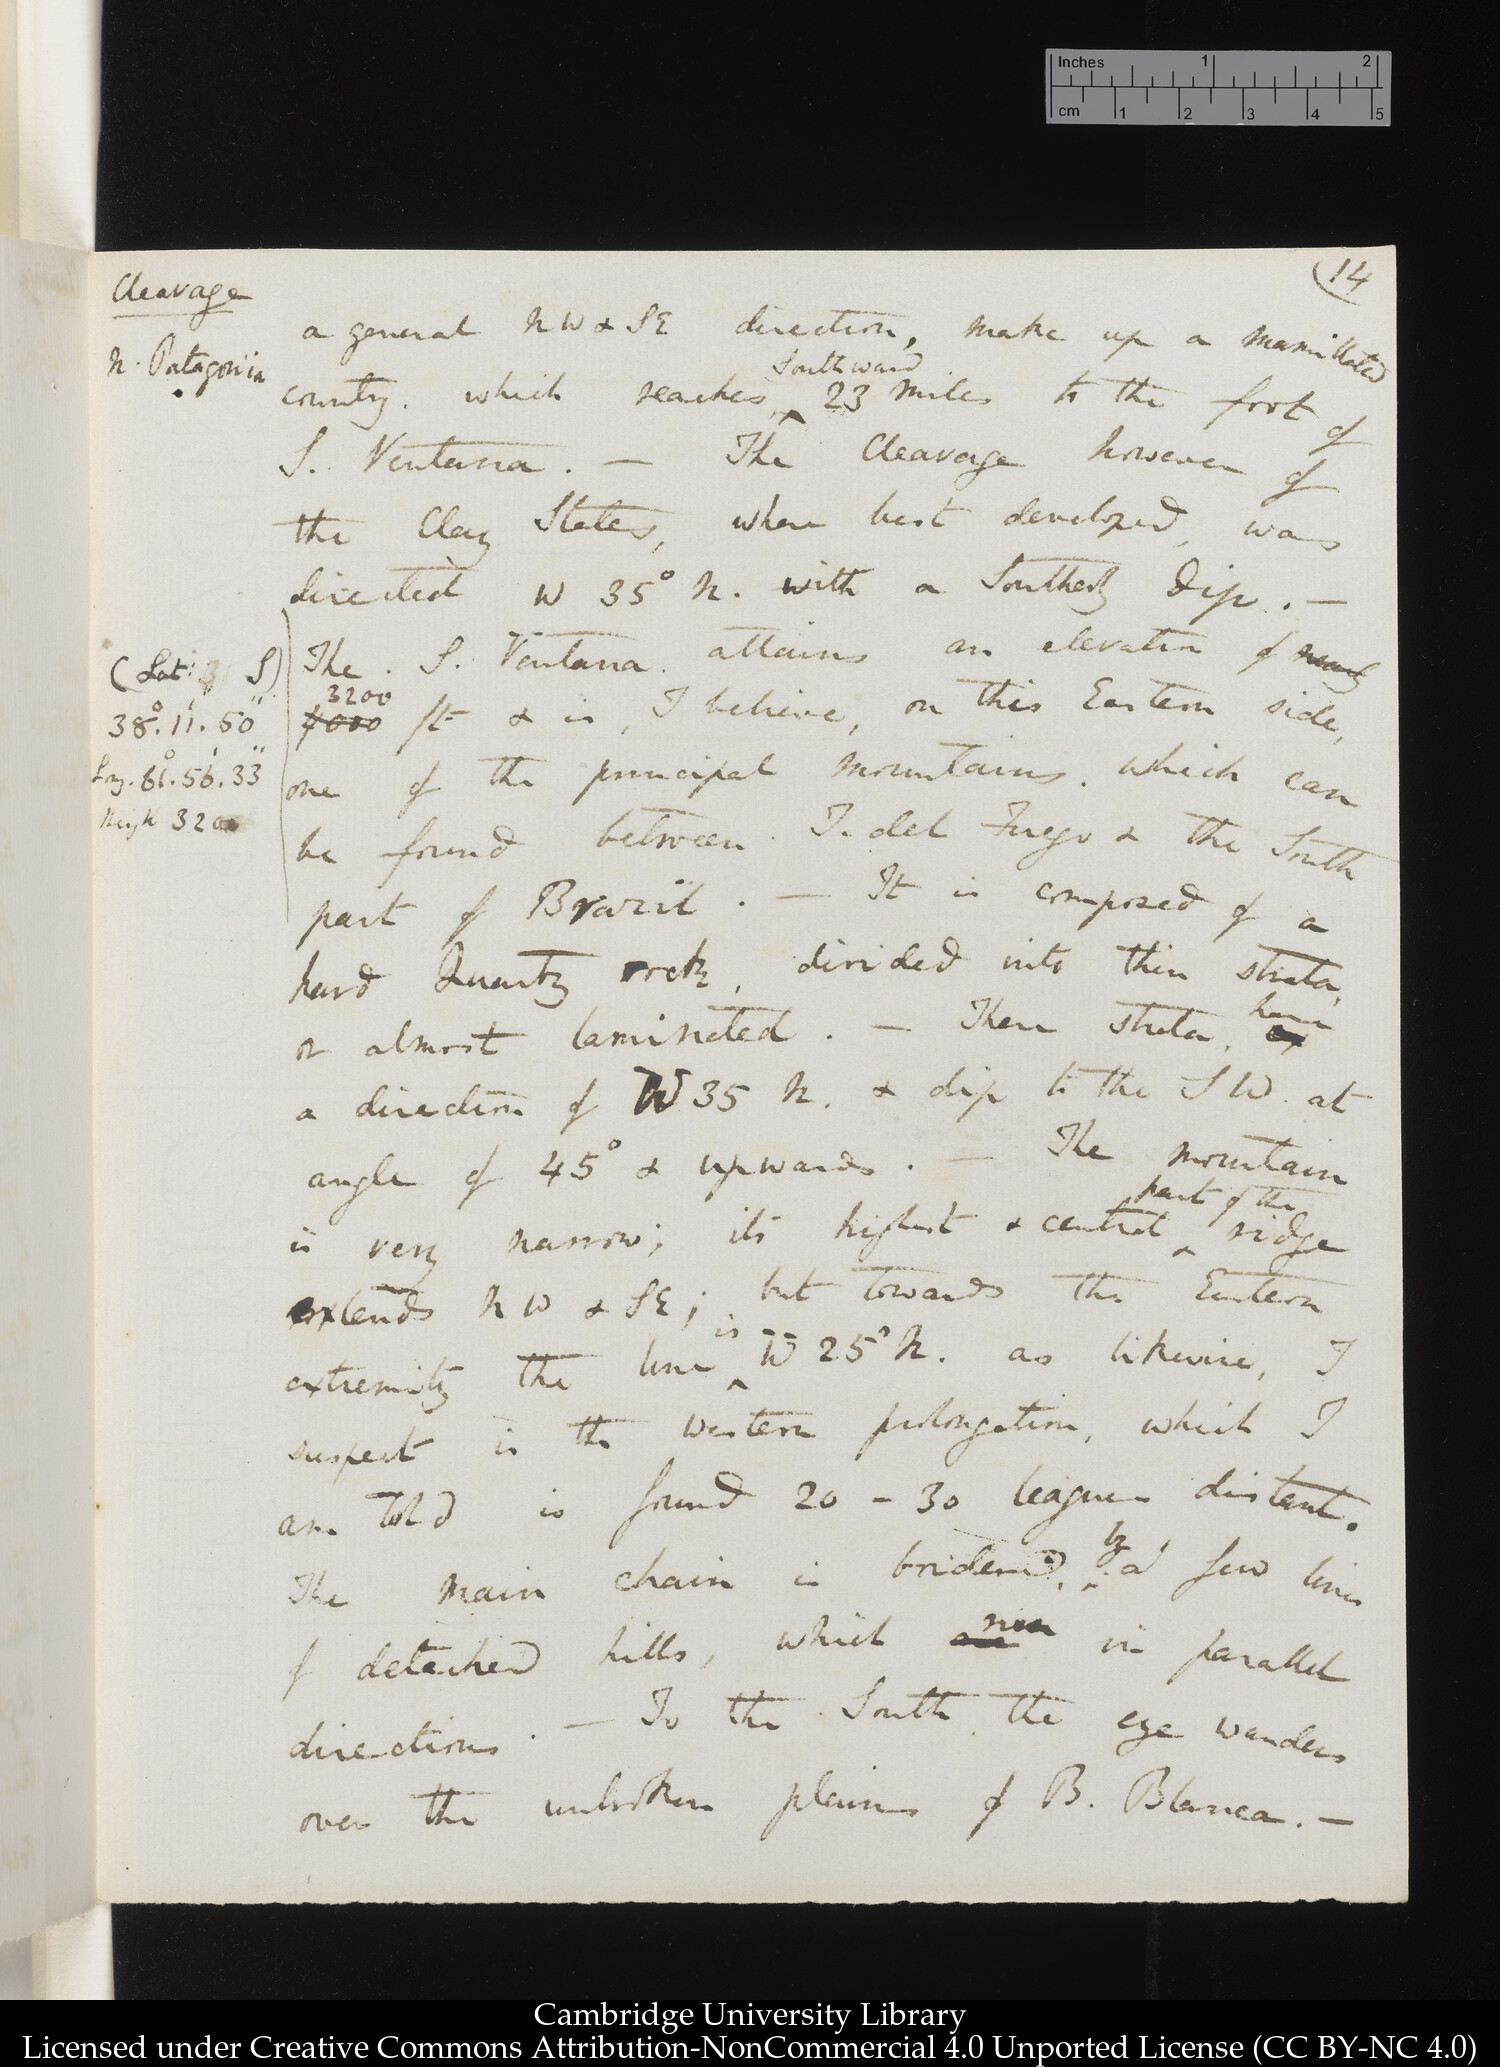 Inches 1 2
cm 1 2 3 4 5
(14
Cleavage
N. Patagonia
a general NW & SE direction, make up a mamillated
Southward
country. which reaches ^ 23 miles to the foot of
S. Ventana. — The Cleavage however of
the Clay Slates, when best developed, was
directed W 35° N. with a Southerly Dip. —
(Lat: S)
38°. 11'. 50"
Long. 61°. 56'. 33"
High 3200
The S. Ventana attains an elevation of nearly
3200
4000 ft & is, I believe, on this Eastern side,
one of the principal mountains. which can
be found between T. del Fuego & the South
part of Brazil. — It is composed of a
hard Quartz rock, divided into thin strata,
or almost laminated. — These strata, have
a direction of W 35 N. & dip to the SW. at
angle of 45° & upwards. — The mountain
part of the
is very narrow; its highest & central ^ ridge
extends NW & SE; but towards the Eastern
is
extremity the line ^ W 25° N. as likewise, I
suspect is the Western prolongation, which I
am told is found 20 - 30 leagues distant.
by
The main chain is bordered, ^ a few lines
run
of detached hills, which are in parallel
directions. — To the South the eye wanders
over the unbroken plains of B. Blanca. —
Cambridge University Library
Licensed under Creative Commons Attribution-NonCommercial 4.0 Unported License (CC BY-NC 4.0)